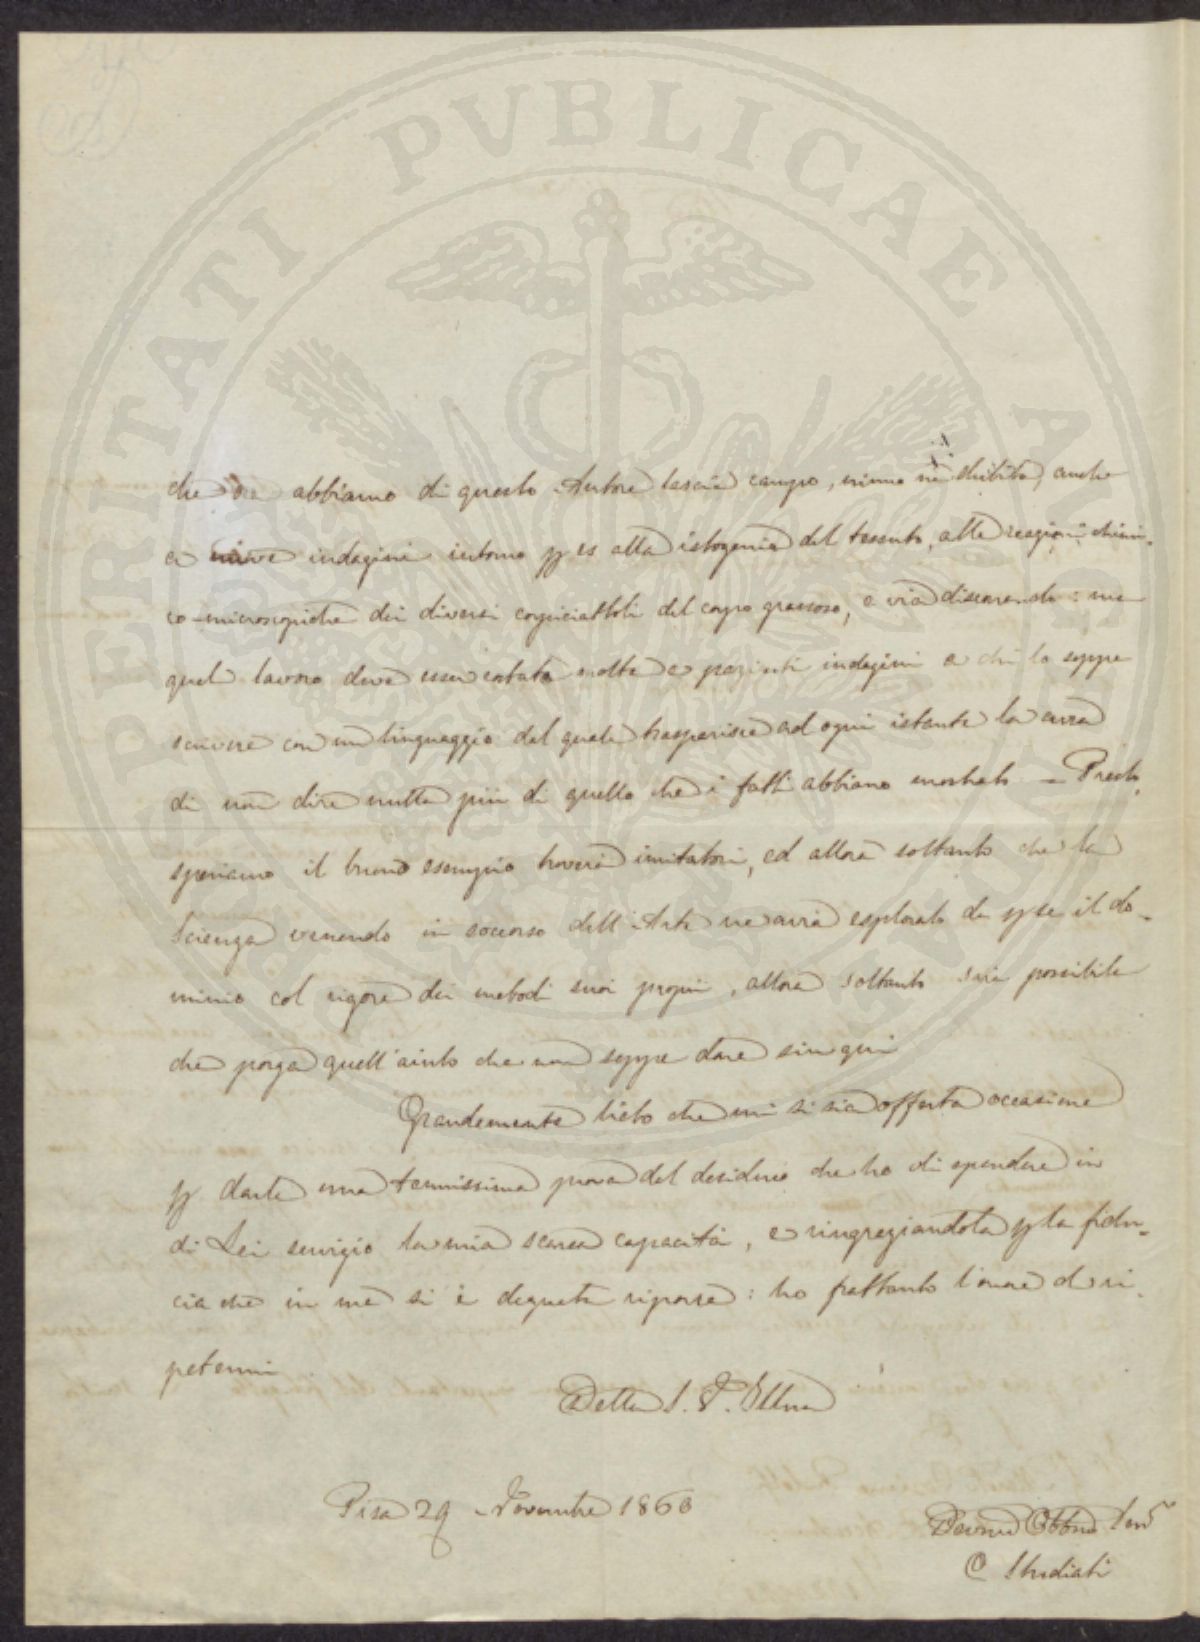 PROSPERITATI PVBLICAE AVGENDAE
che abbiamo di questo Autore lascia campo, niuno ne dubita, anche
a nuove indagini intorno p es alla istogenia del tessuto, alle reazioni chimi-
co-microscopiche dei diversi corpicciattoli del corpo grassoso, e via discorrendo: ma
quel lavoro deve esser costato molte e pazienti indagini a chi lo seppe
scrivere con un linguaggio dal quale trasparisce ad ogni istante la cura
di non dire nulla più di quello che i fatti abbiano mostrato – Presto,
speriamo il buono esempio troverà imitatori, ed allora soltanto che la
Scienza venendo in soccorso dell'Arte ne avrà esplorato da p se il do-
minio col rigore dei metodi suoi propri, allora soltanto sarà possibile
che porga quell'aiuto che non seppe dare sin qui
Grandemente lieto che mi si sia offerta occasione
p darle una tenuissima prova del desiderio che ho di spendere in
di Lei servigio la mia scarsa capacità, e ringraziandola p la fidu-
cia che in me si è degnata riporre: ho frattanto l'onore di ri-
petermi
Della S. V. Illma
Pisa 29 Novembre 1863
Devmo Obbmo Servre
C Studiati